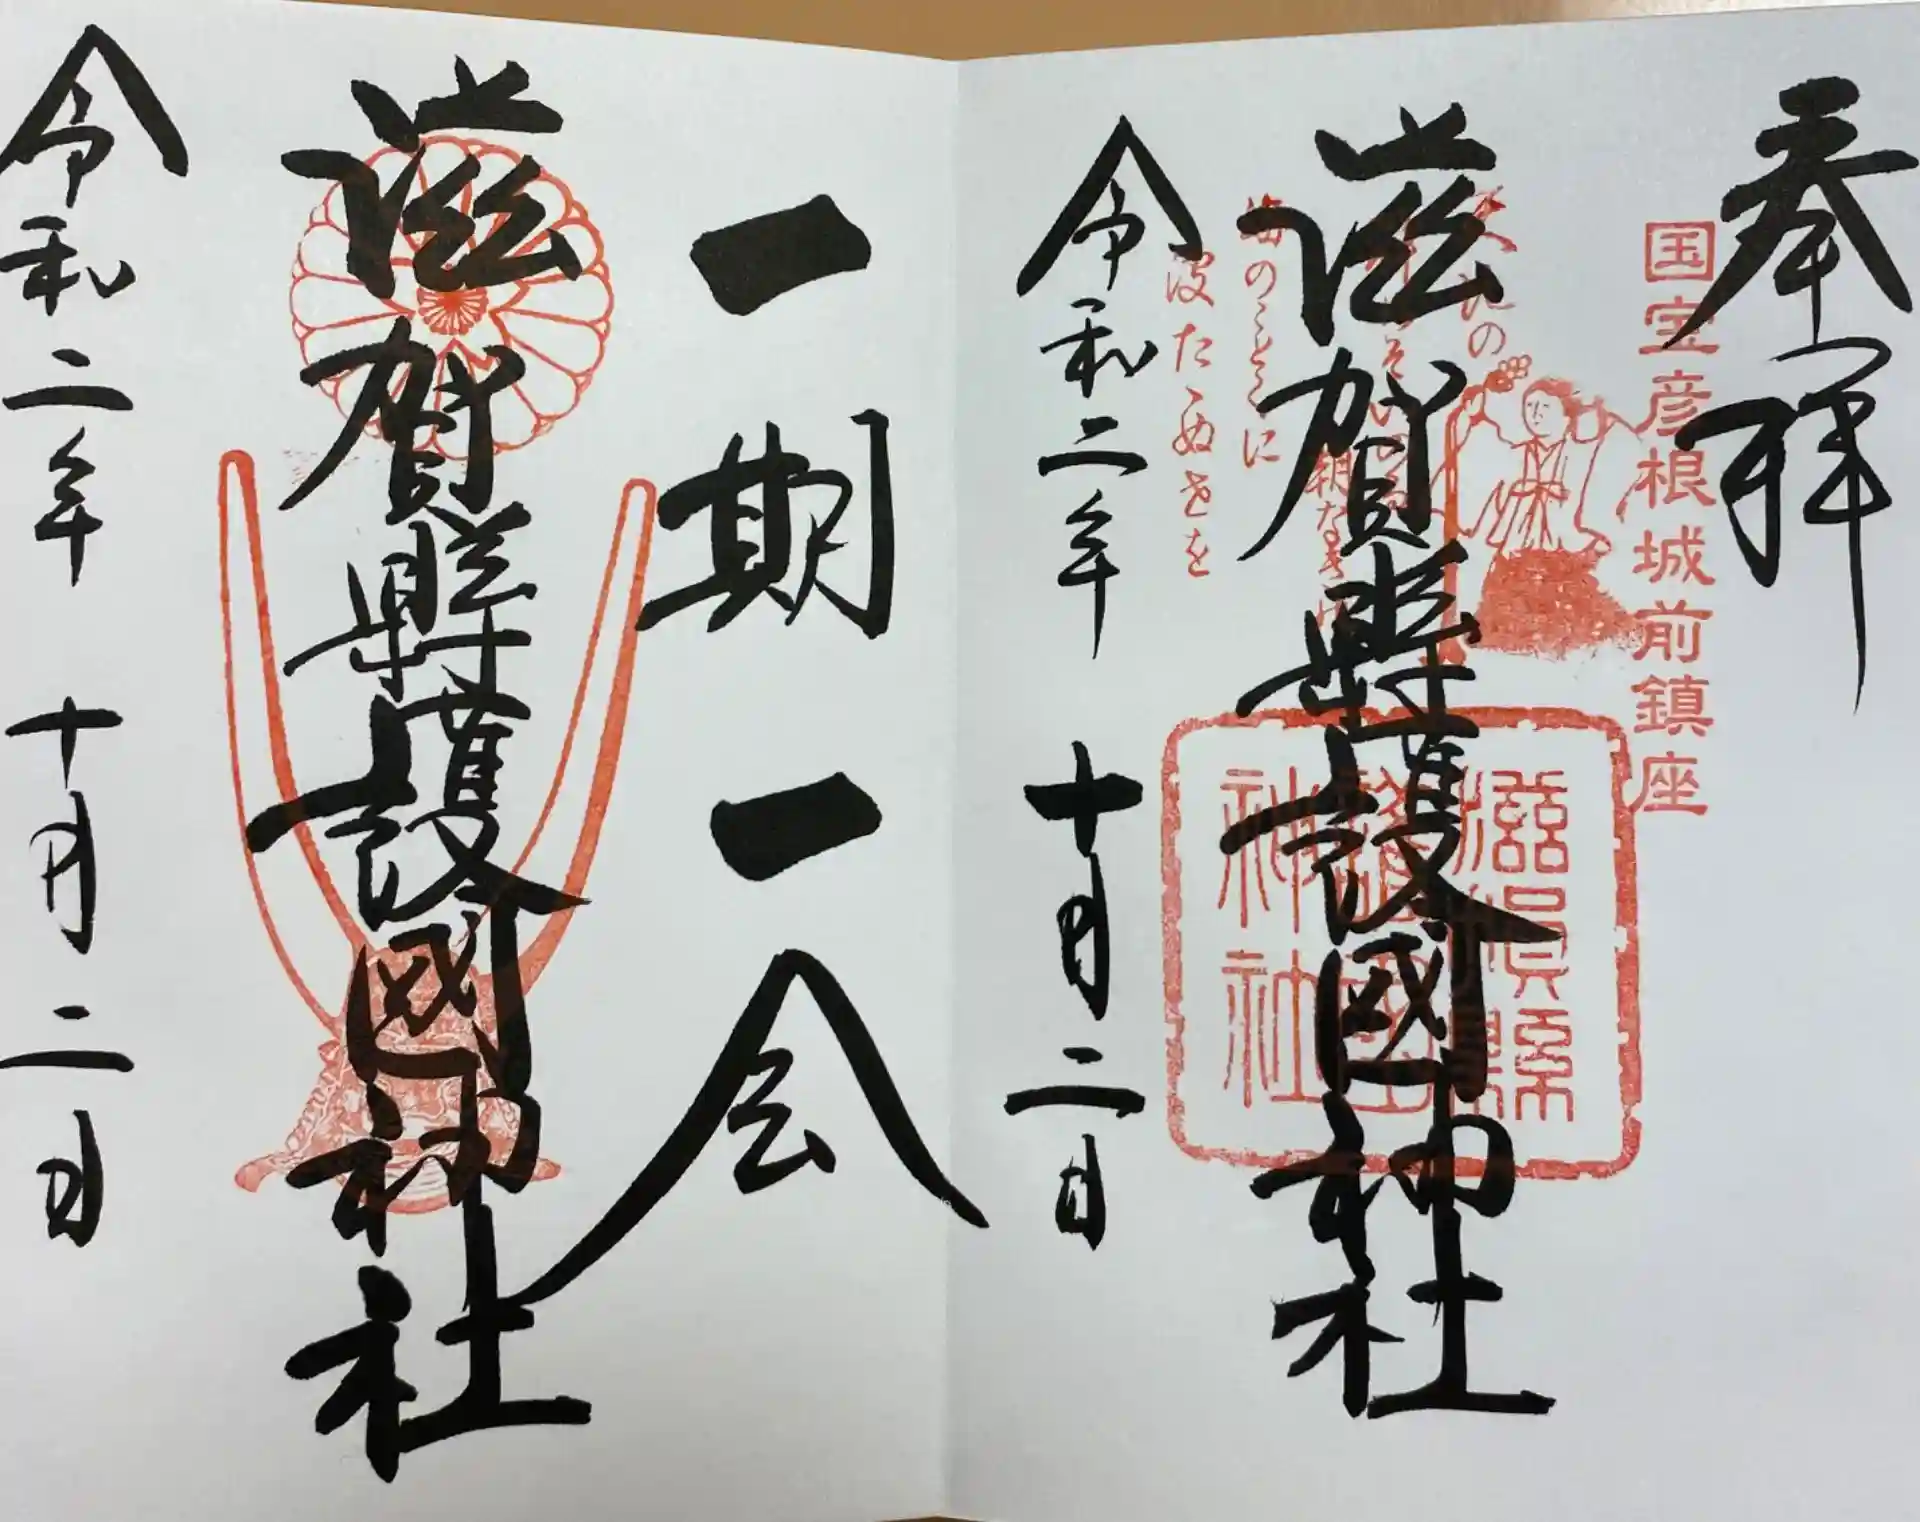 奉拝
国宝彦根城前鎮座
滋賀縣護國神社
滋賀縣護國神社
海のことくに
波たゝぬせを
令和二年 十月二日
一期一会
滋賀縣護國神社
令和二年 十月二日